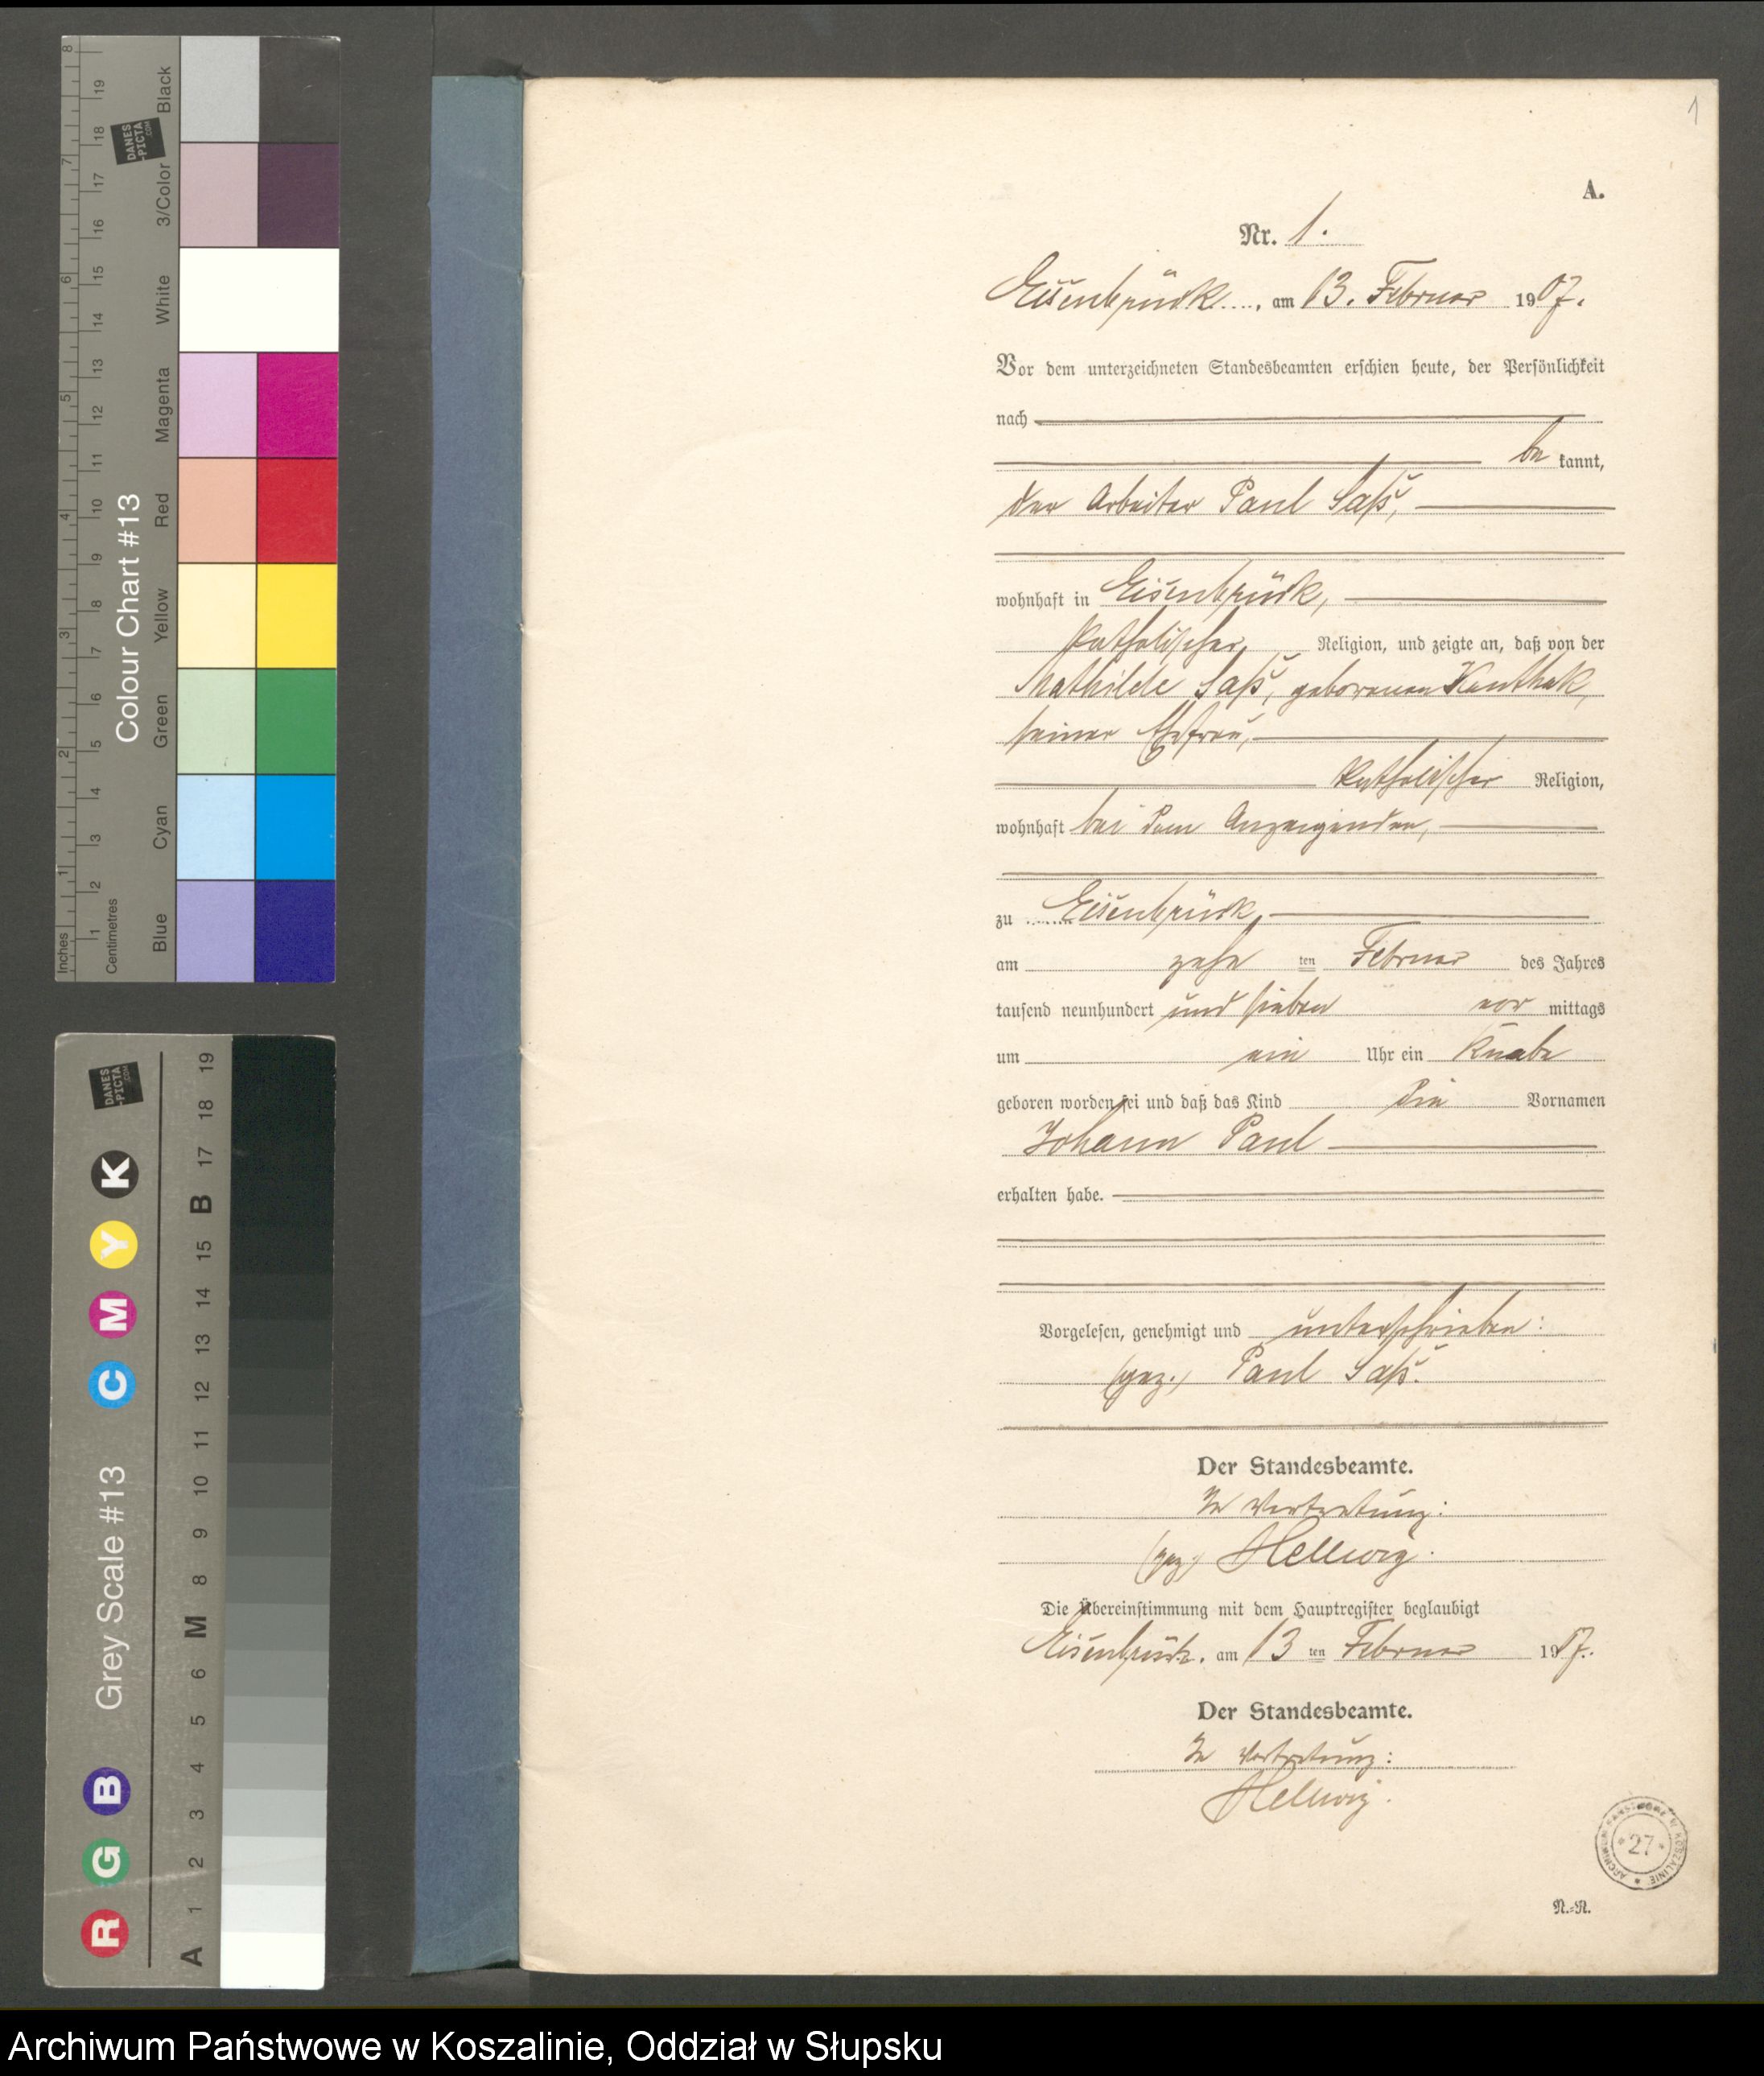 1
A.
Nr. 1.
Eisenbrück, am 13. Februar 1907.
Vor dem unterzeichneten Standesbeamten erschien heute, der Persönlichkeit
nach
be kannt,
der Arbeiter Paul Saß,
wohnhaft in Eisenbrück,
katholischer Religion, und zeigte an, daß von der
Mathilde Saß, geborenen Kanthak,
seiner Ehefrau,
katholischer Religion,
wohnhaft bei dem Anzeigenden,
zu Eisenbrück,
am zehn ten Februar des Jahres
tausend neunhundert und sieben vor mittags
um ein Uhr ein Knabe
geboren worden sei und daß das Kind die Vornamen
Johann Paul
erhalten habe.
Vorgelesen, genehmigt und unterschrieben:
(gez.) Paul Saß.
Der Standesbeamte.
In Vertretung:
(gez.) Hellwig.
Die Übereinstimmung mit dem Hauptregister beglaubigt
Eisenbrück, am 13 ten Februar 1907.
Der Standesbeamte.
In Vertretung:
Hellwig.
ARCHIWUM PAŃSTWOWE W KOSZALINIE
* 27 *
N.-R.
Colour Chart #13
Black
3/Color
White
Magenta
Red
Yellow
Green
Cyan
Blue
Inches
Centimetres
DANES-PICTA.COM
8 7 6 5 4 3 2 1
19 18 17 16 15 14 13 12 11 10 9 8 7 6 5 4 3 2 1
Grey Scale #13
DANES-PICTA.COM
R G B C M Y K
A 1 2 3 4 5 6 M 8 9 10 11 12 13 14 15 B 17 18 19
Archiwum Państwowe w Koszalinie, Oddział w Słupsku